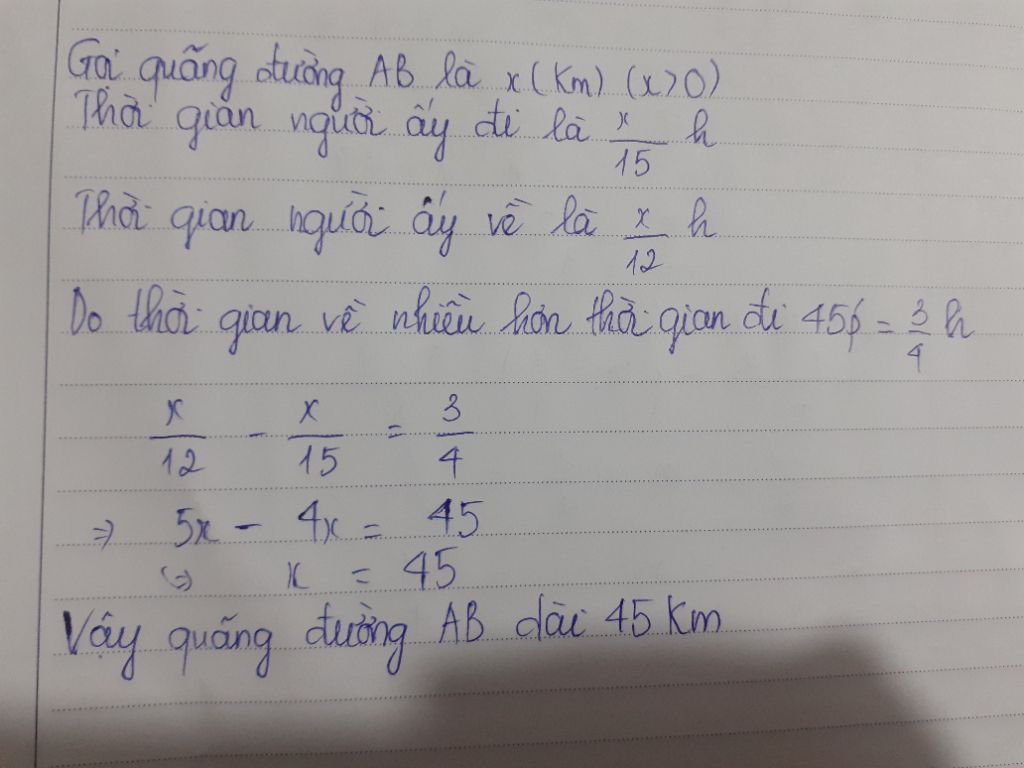 Gọi quãng đường AB là x (Km) (x>0)
Thời gian người ấy đi là x/15 h
Thời gian người ấy về là x/12 h
Do thời gian về nhiều hơn thời gian đi 45p = 3/4 h
x/12 - x/15 = 3/4
=> 5x - 4x = 45
<=> x = 45
Vậy quãng đường AB dài 45 Km